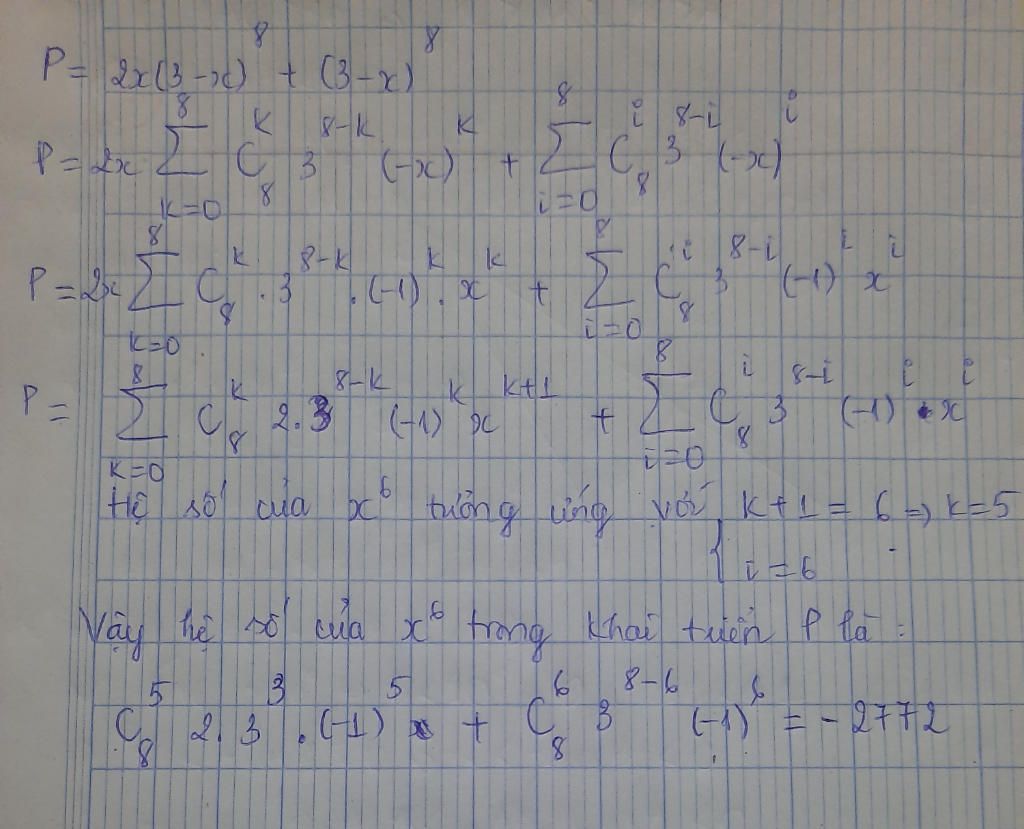 P = 2x(3-x)^8 + (3-x)^8
P = 2x \sum_{k=0}^{8} C_8^k 3^{8-k} (-x)^k + \sum_{i=0}^{8} C_8^i 3^{8-i} (-x)^i
P = 2x \sum_{k=0}^{8} C_8^k . 3^{8-k} . (-1)^k . x^k + \sum_{i=0}^{8} C_8^i 3^{8-i} (-1)^i x^i
P = \sum_{k=0}^{8} C_8^k 2.3^{8-k} (-1)^k x^{k+1} + \sum_{i=0}^{8} C_8^i 3^{8-i} (-1)^i . x^i
Hệ số của x^6 tương ứng với { k+1 = 6 => k=5
i = 6
Vậy hệ số của x^6 trong khai triển P là :
C_8^5 2.3^3 . (-1)^5 + C_8^6 3^{8-6} (-1)^6 = -2772